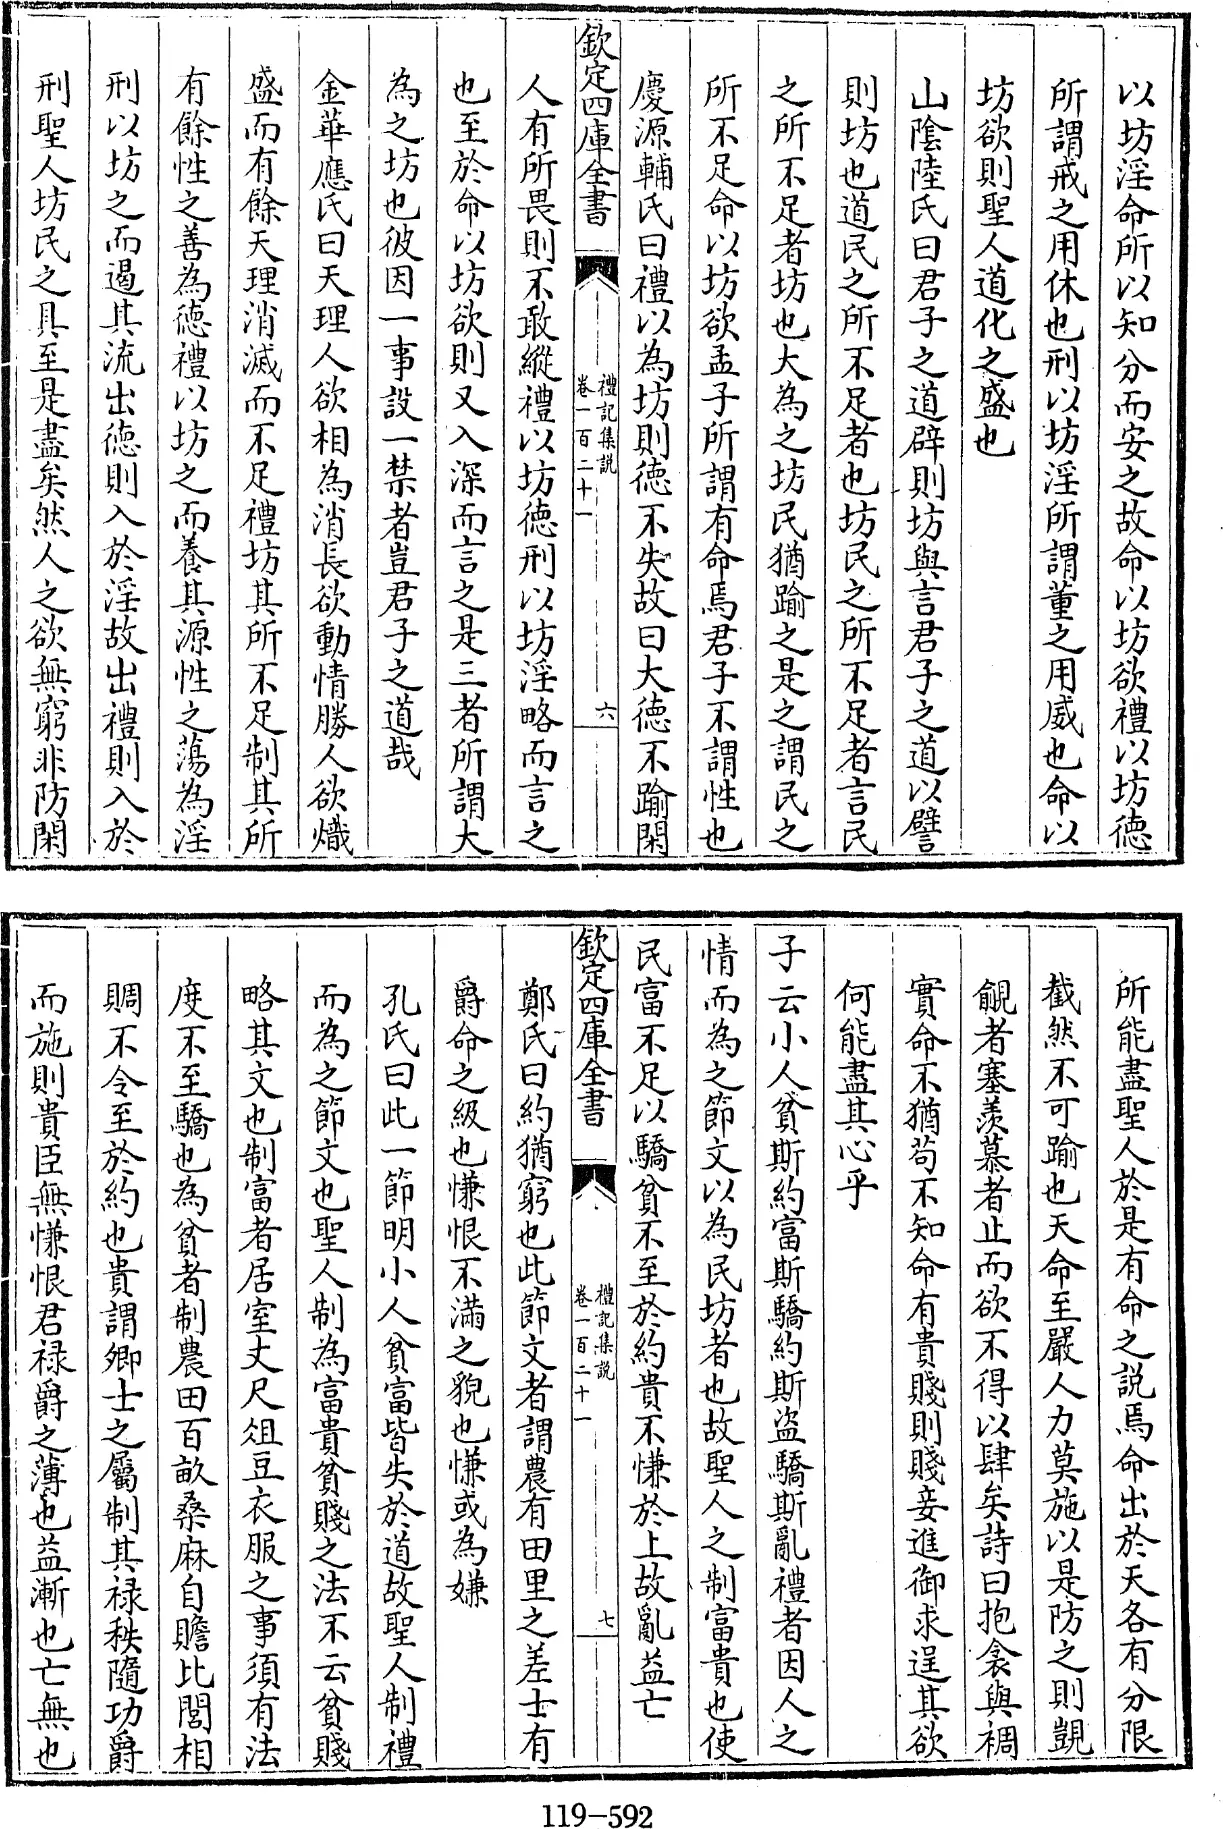 以坊淫命所以知分而安之故命以坊欲禮以坊德
所謂戒之用休也刑以坊淫所謂董之用威也命以
坊欲則聖人道化之盛也
山陰陸氏曰君子之道辟則坊與言君子之道以譬
則坊也道民之所不足者也坊民之所不足者言民
之所不足者坊也大為之坊民猶踰之是之謂民之
所不足命以坊欲孟子所謂有命焉君子不謂性也
慶源輔氏曰禮以為坊則德不失故曰大德不踰閑
欽定四庫全書
禮記集說
卷一百二十一
六
人有所畏則不敢縱禮以坊德刑以坊淫略而言之
也至於命以坊欲則又入深而言之是三者所謂大
為之坊也彼因一事設一禁者豈君子之道哉
金華應氏曰天理人欲相為消長欲動情勝人欲熾
盛而有餘天理消滅而不足禮坊其所不足制其所
有餘性之善為德禮以坊之而養其源性之蕩為淫
刑以坊之而遏其流出德則入於淫故出禮則入於
刑聖人坊民之具至是盡矣然人之欲無窮非防閑
所能盡聖人於是有命之說焉命出於天各有分限
截然不可踰也天命至嚴人力莫施以是防之則覬
覦者塞羨慕者止而欲不得以肆矣詩曰抱衾與裯
實命不猶苟不知命有貴賤則賤妾進御求逞其欲
何能盡其心乎
子云小人貧斯約富斯驕約斯盜驕斯亂禮者因人之
情而為之節文以為民坊者也故聖人之制富貴也使
民富不足以驕貧不至於約貴不慊於上故亂益亡
欽定四庫全書
禮記集說
卷一百二十一
七
鄭氏曰約猶窮也此節文者謂農有田里之差士有
爵命之級也慊恨不滿之貌也慊或為嫌
孔氏曰此一節明小人貧富皆失於道故聖人制禮
而為之節文也聖人制為富貴貧賤之法不云貧賤
略其文也制富者居室丈尺俎豆衣服之事須有法
度不至驕也為貧者制農田百畝桑麻自贍比閭相
賙不令至於約也貴謂卿士之屬制其祿秩隨功爵
而施則貴臣無慊恨君祿爵之薄也益漸也亡無也
119-592